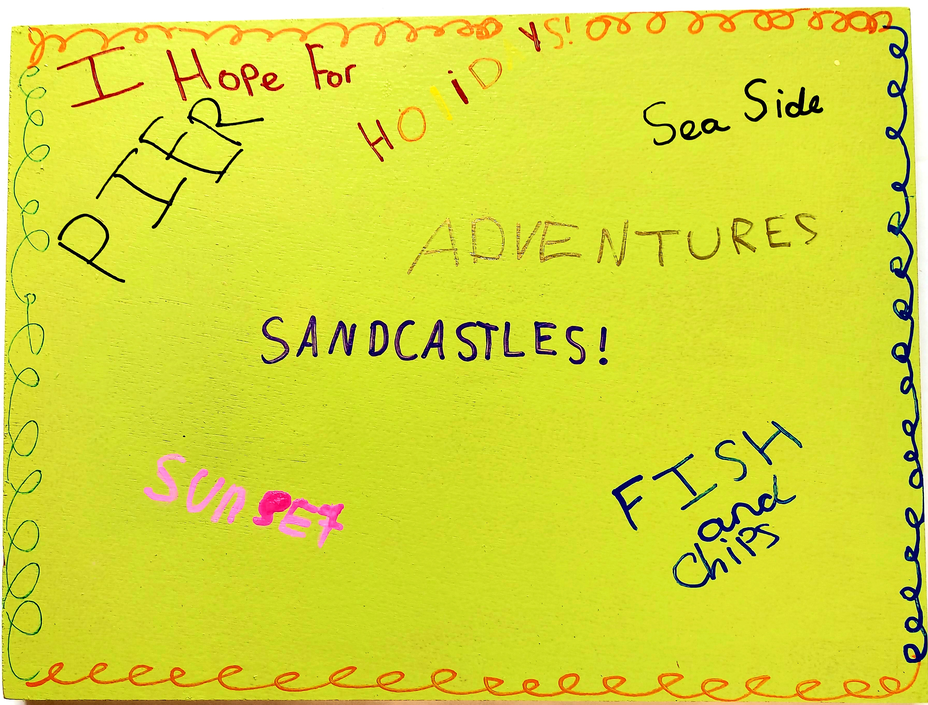 I Hope For
HOliDAYS!
PIER
Sea Side
ADVENTURES
SANDCASTLES!
SUnSET
FISH
and
ChiPs